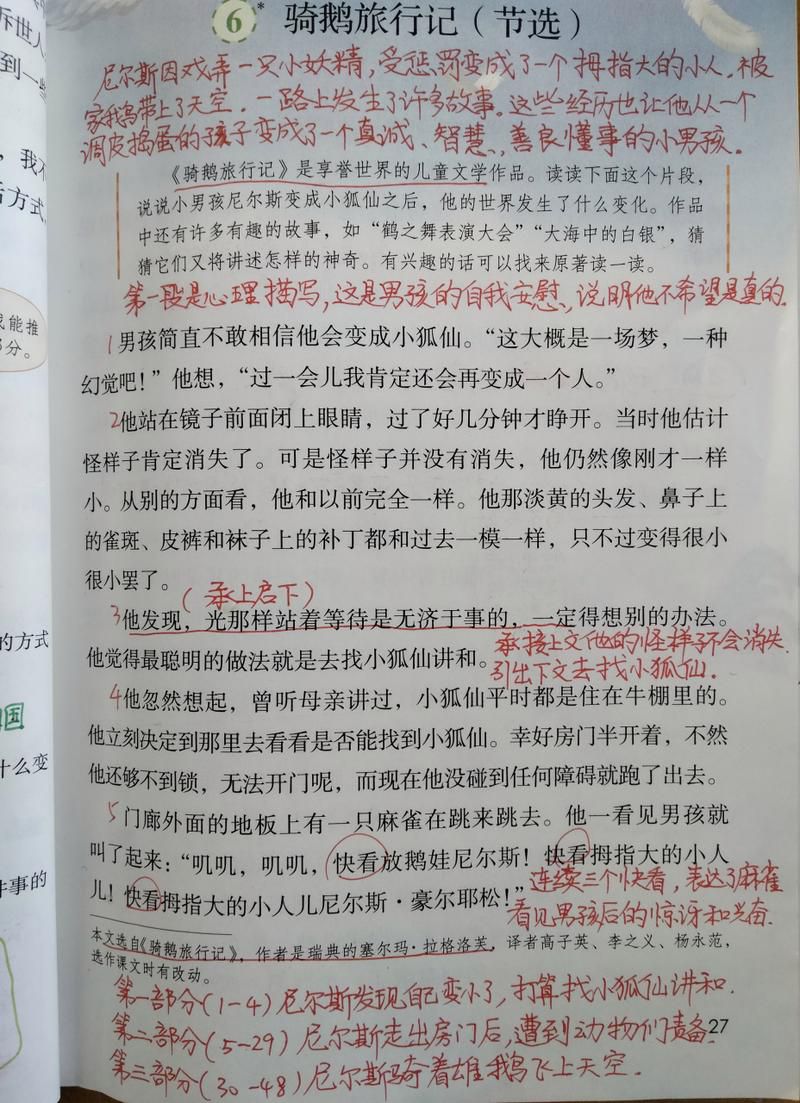 6* 骑鹅旅行记（节选）
尼尔斯因戏弄一只小妖精，受惩罚变成了一个拇指大的小人，被
家鹅带上了天空。一路上发生了许多故事。这些经历也让他从一个
调皮捣蛋的孩子变成了一个真诚、智慧、善良懂事的小男孩。
《骑鹅旅行记》是享誉世界的儿童文学作品。读读下面这个片段，
说说小男孩尼尔斯变成小狐仙之后，他的世界发生了什么变化。作品
中还有许多有趣的故事，如“鹤之舞表演大会”“大海中的白银”，猜
猜它们又将讲述怎样的神奇。有兴趣的话可以找来原著读一读。
第一段是心理描写，这是男孩的自我安慰，说明他不希望是真的.
1男孩简直不敢相信他会变成小狐仙。“这大概是一场梦，一种
幻觉吧！”他想，“过一会儿我肯定还会再变成一个人。”
2他站在镜子前面闭上眼睛，过了好几分钟才睁开。当时他估计
怪样子肯定消失了。可是怪样子并没有消失，他仍然像刚才一样
小。从别的方面看，他和以前完全一样。他那淡黄的头发、鼻子上
的雀斑、皮裤和袜子上的补丁都和过去一模一样，只不过变得很小
很小罢了。
（承上启下）
3他发现，光那样站着等待是无济于事的，一定得想别的办法。
他觉得最聪明的做法就是去找小狐仙讲和。
承接上文他的怪样子不会消失.
引出下文去找小狐仙.
4他忽然想起，曾听母亲讲过，小狐仙平时都是住在牛棚里的。
他立刻决定到那里去看看是否能找到小狐仙。幸好房门半开着，不然
他还够不到锁，无法开门呢，而现在他没碰到任何障碍就跑了出去。
5门廊外面的地板上有一只麻雀在跳来跳去。他一看见男孩就
叫了起来：“叽叽，叽叽，快看放鹅娃尼尔斯！快看拇指大的小人
儿！快看拇指大的小人儿尼尔斯·豪尔耶松！”
连续三个快看，表达了麻雀
看见男孩后的惊讶和兴奋.
本文选自《骑鹅旅行记》，作者是瑞典的塞尔玛·拉格洛芙，译者高子英、李之义、杨永范，
选作课文时有改动。
第一部分(1-4)尼尔斯发现自己变小了，打算找小狐仙讲和.
第二部分(5-29)尼尔斯走出房门后，遭到动物们责备.
27
第三部分(30-48)尼尔斯骑着雄鹅飞上天空.
诉世人
到一些
我不
后方式
我能推
部分。
的方式
国
什么变
件事的